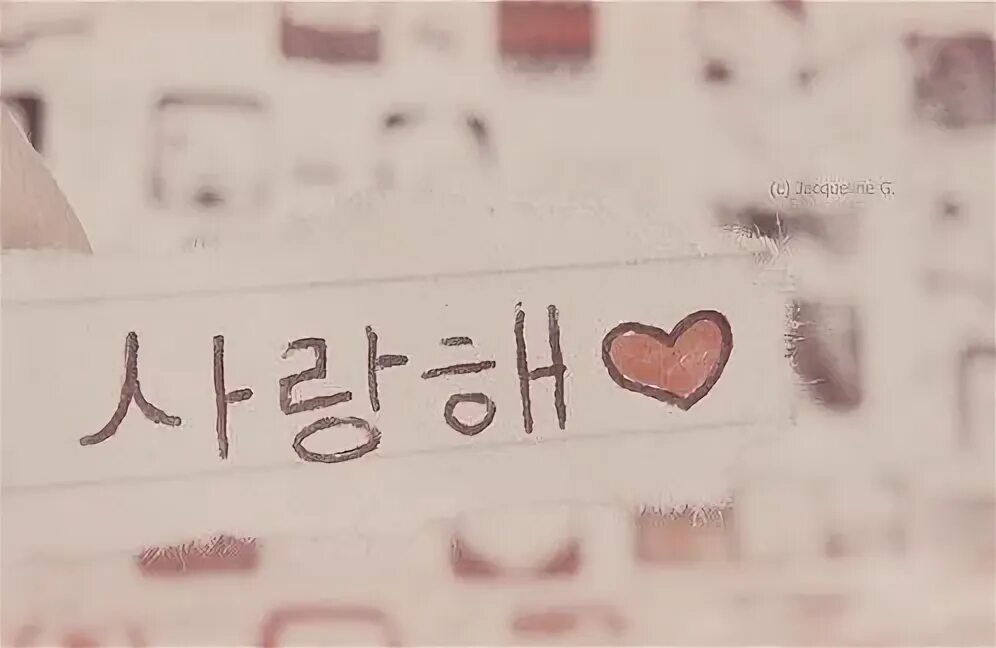 (c) Jacqueline G.
사랑해